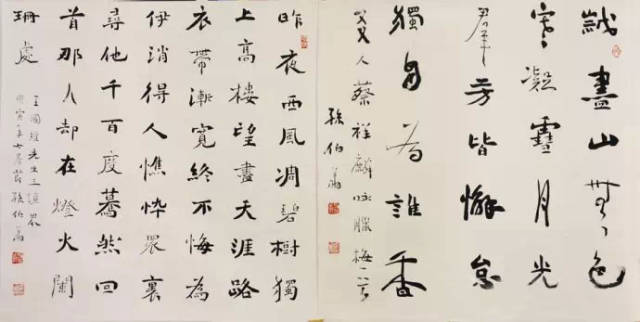 歲盡山無色
寒凝靈月光
羣芳皆懈怠
獨自為誰香
友人蔡祥麟詠臘梅一首
孫伯翔
昨夜西風凋碧樹獨
上高樓望盡天涯路
衣帶漸寬終不悔為
伊消得人憔悴眾裏
尋他千百度驀然回
首那人却在燈火闌
珊處
王國維先生三境界
孫伯翔